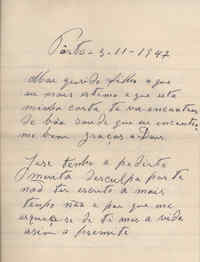 Pôrto - 3-11-1947
Meu querido filho o que
eu mais estimo e que esta
minha carta te va encontrar
de bôa saude que eu encontro
me bem graças a Deus.
José tenho a pedirte
muita desculpa por te
não ter escrito a mais
tempo não e por que me
esqueça-se de ti mas a vida
asim o premite